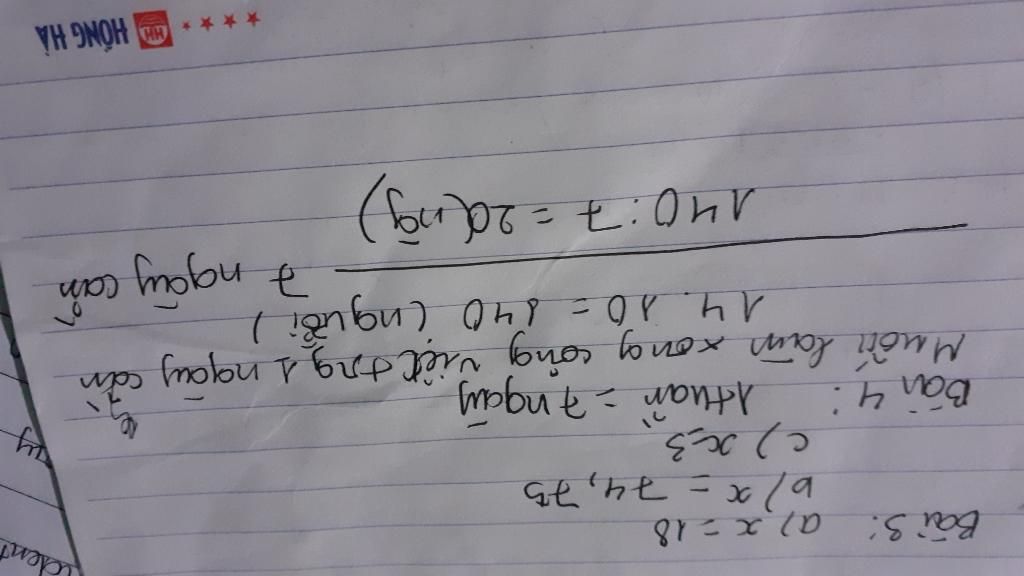 Bài 3: a) x = 18
b) x = 74,75
c) x = 3
Bài 4: 1 tuần = 7 ngày
Muốn làm xong công việc trg 1 ngày cần
14 . 10 = 140 (người)
7 ngày cần
140 : 7 = 20 (ng)
HỒNG HÀ
HH